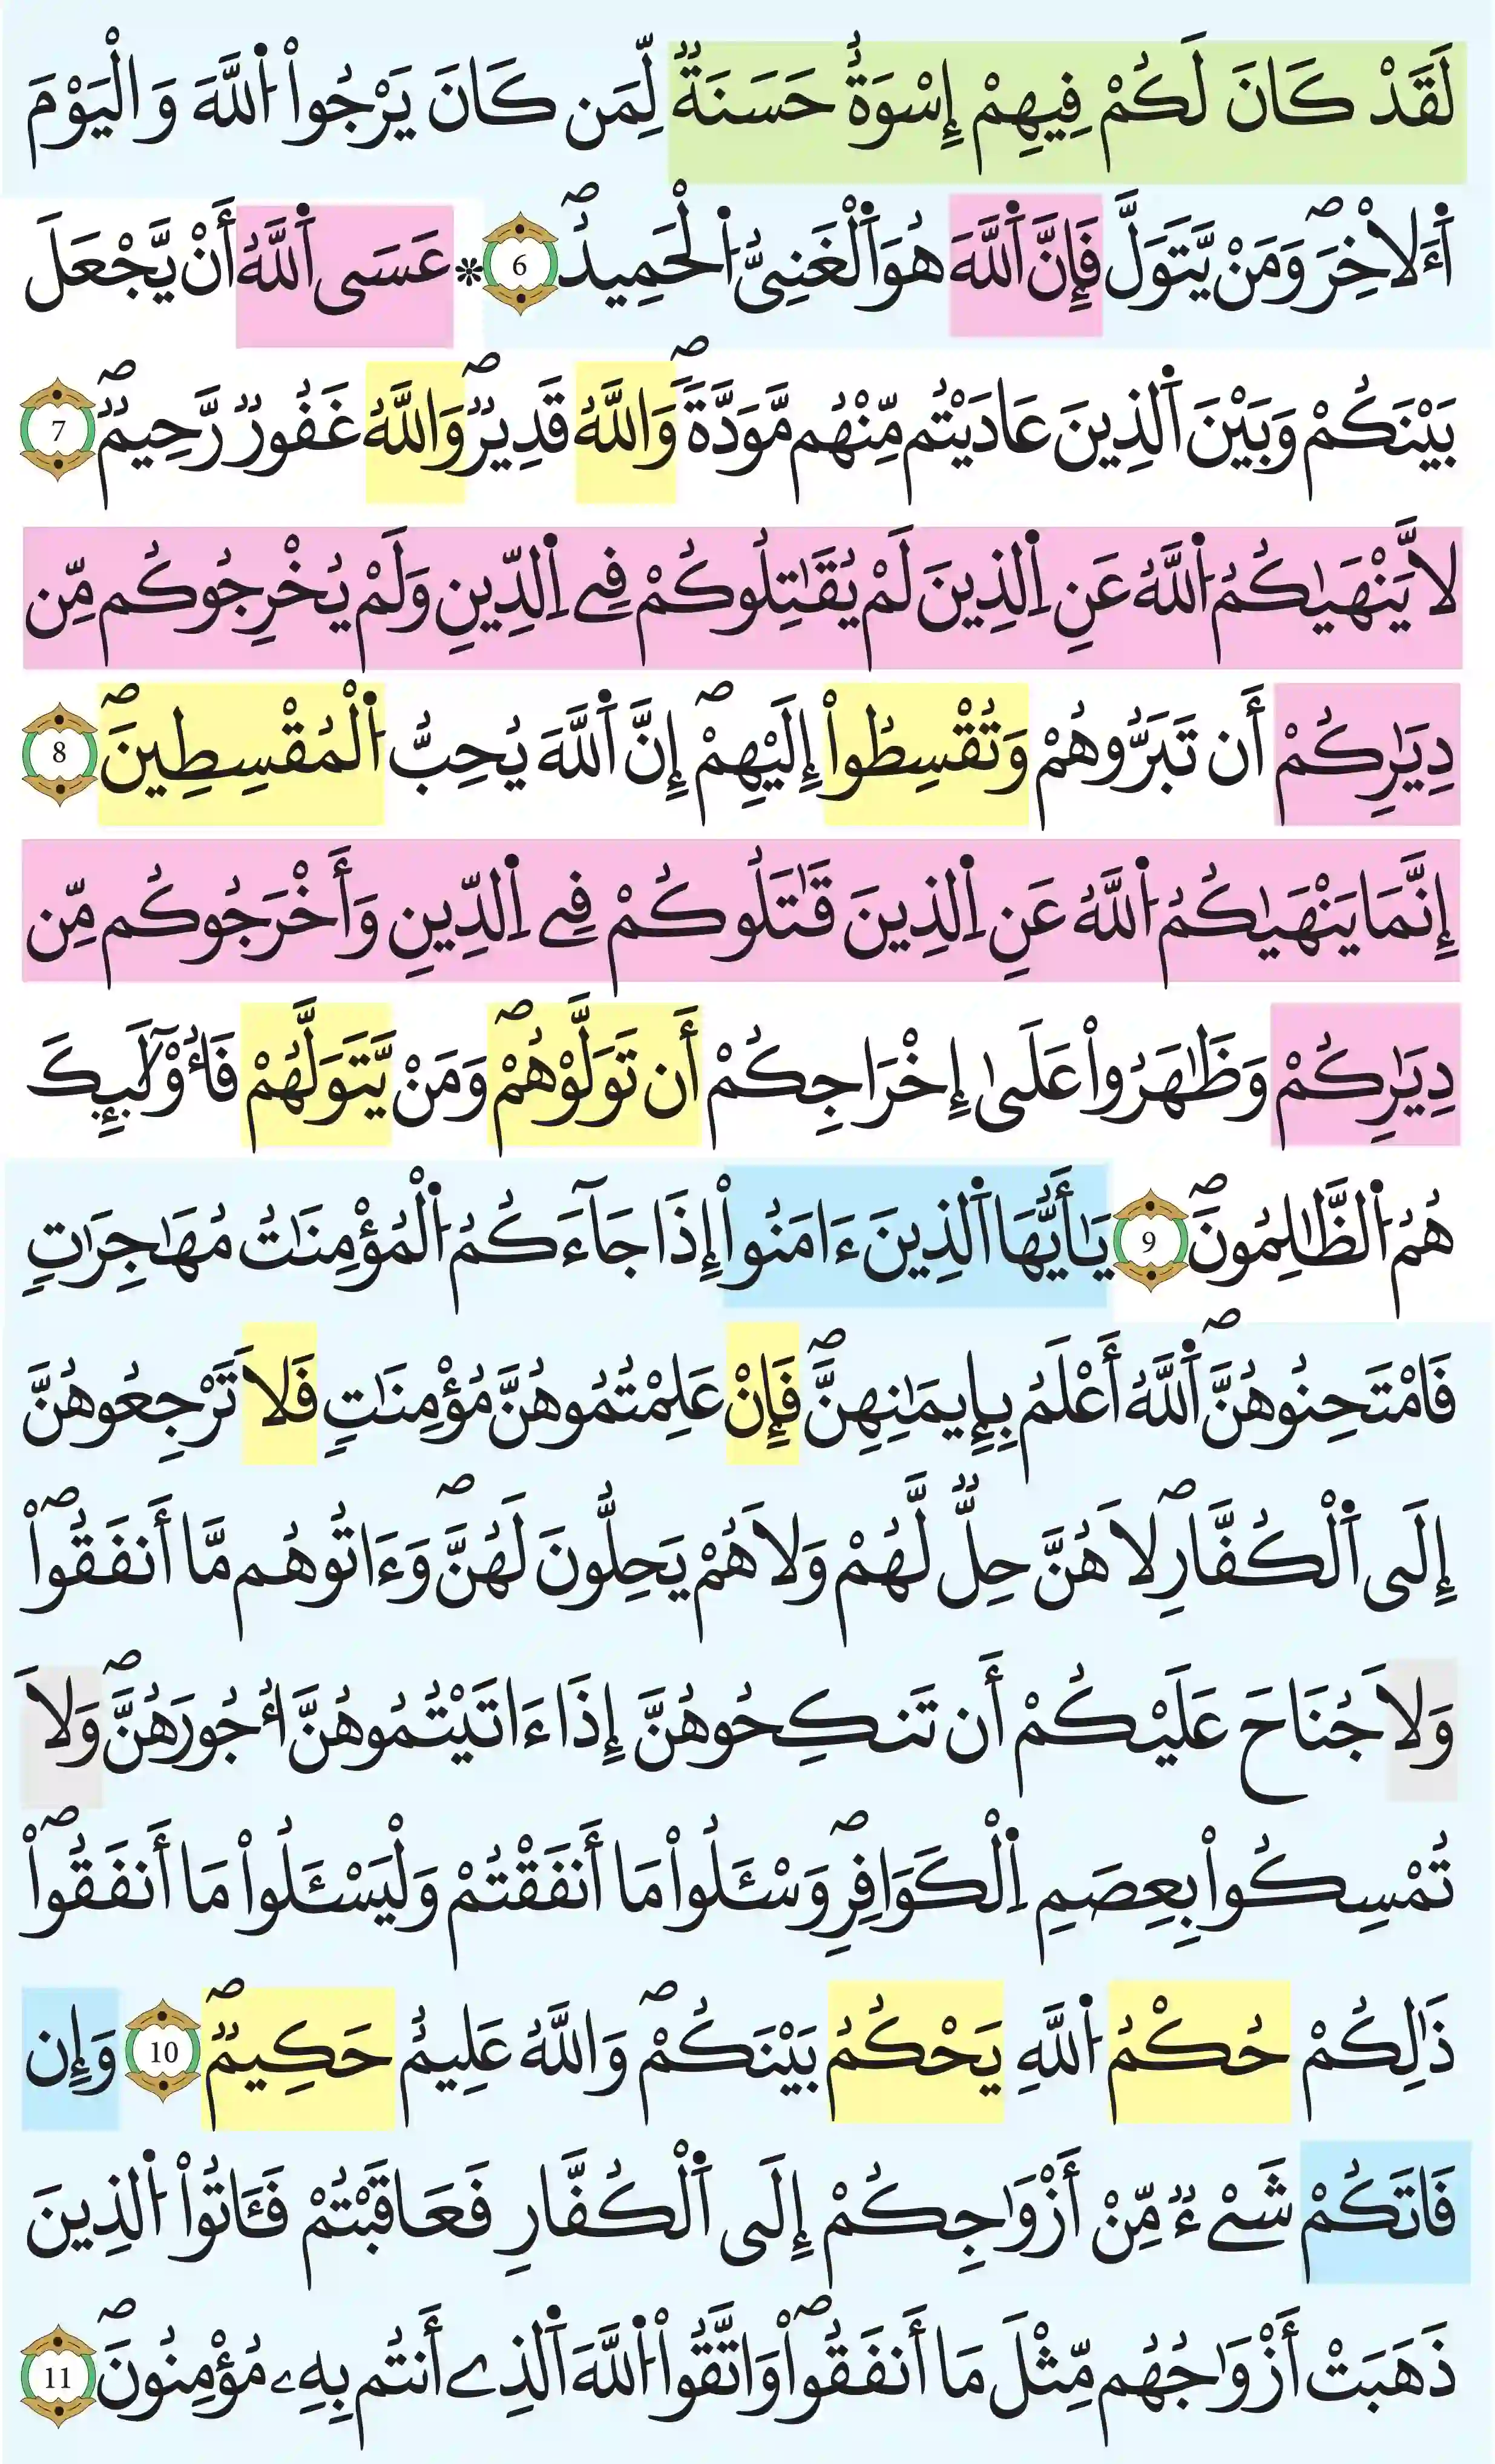 لَقَدْ كَانَ لَكُمْ فِيهِمْ إِسْوَةٌ حَسَنَةٌ لِّمَن كَانَ يَرْجُواْ اُللَّهَ وَالْيَوْمَ
اَ۬لَاخِرَۖ وَمَنْ يَّتَوَلَّ فَإِنَّ اَ۬للَّهَ هُوَ اَ۬لْغَنِيُّ اُ۬لْحَمِيدُۖ 6 ۞ عَسَى اَ۬للَّهُ أَنْ يَّجْعَلَ
بَيْنَكُمْ وَبَيْنَ اَ۬لذِينَ عَادَيْتُم مِّنْهُم مَّوَدَّةٗۖ وَاللَّهُ قَدِيرٞۖ وَاللَّهُ غَفُورٞ رَّحِيمٞۖ 7
لَّا يَنْهَيٰكُمُ اُ۬للَّهُ عَنِ اِ۬لذِينَ لَمْ يُقَٰتِلُوكُمْ فِے اِ۬لدِّينِ وَلَمْ يُخْرِجُوكُم مِّن
دِيَٰرِكُمْ أَن تَبَرُّوهُمْ وَتُقْسِطُواْ إِلَيْهِمْۖ إِنَّ اَ۬للَّهَ يُحِبُّ اُ۬لْمُقْسِطِينَۖ 8
إِنَّمَا يَنْهَيٰكُمُ اُ۬للَّهُ عَنِ اِ۬لذِينَ قَٰتَلُوكُمْ فِے اِ۬لدِّينِ وَأَخْرَجُوكُم مِّن
دِيَٰرِكُمْ وَظَٰهَرُواْ عَلَىٰ إِخْرَاجِكُمْ أَن تَوَلَّوْهُمْۖ وَمَنْ يَّتَوَلَّهُمْ فَأُوْلَٰٓئِكَ
هُمُ اُ۬لظَّٰلِمُونَۖ 9 يَٰأَيُّهَا اَ۬لذِينَ ءَامَنُواْ إِذَا جَآءَكُمُ اُ۬لْمُؤْمِنَٰتُ مُهَٰجِرَٰتٖ
فَامْتَحِنُوهُنَّۖ اَ۬للَّهُ أَعْلَمُ بِإِيمَٰنِهِنَّۖ فَإِنْ عَلِمْتُمُوهُنَّ مُؤْمِنَٰتٖ فَلَا تَرْجِعُوهُنَّ
إِلَى اَ۬لْكُفَّارِۖ لَا هُنَّ حِلّٞ لَّهُمْ وَلَا هُمْ يَحِلُّونَ لَهُنَّۖ وَءَاتُوهُم مَّا أَنفَقُواْۖ
وَلَا جُنَاحَ عَلَيْكُمْ أَن تَنكِحُوهُنَّ إِذَا ءَاتَيْتُمُوهُنَّ أُجُورَهُنَّۖ وَلَا
تُمْسِكُواْ بِعِصَمِ اِ۬لْكَوَافِرِۖ وَسْـَٔلُواْ مَا أَنفَقْتُمْ وَلْيَسْـَٔلُواْ مَا أَنفَقُواْۖ
ذَٰلِكُمْ حُكْمُ اُ۬للَّهِ يَحْكُمُ بَيْنَكُمْۖ وَاللَّهُ عَلِيمٌ حَكِيمٞۖ 10 وَإِن
فَاتَكُمْ شَےْءٞ مِّنْ أَزْوَٰجِكُمْ إِلَى اَ۬لْكُفَّارِ فَعَاقَبْتُمْ فَـَٔاتُواْ اُ۬لذِينَ
ذَهَبَتْ أَزْوَٰجُهُم مِّثْلَ مَا أَنفَقُواْۖ وَاتَّقُواْ اُ۬للَّهَ اَ۬لذِے أَنتُم بِهِۦ مُؤْمِنُونَۖ 11